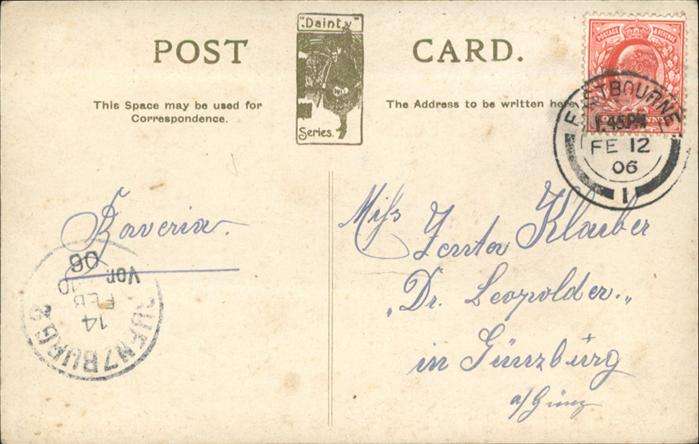 POST CARD.
"Dainty"
Series.
This Space may be used for
Correspondence.
The Address to be written here
POSTAGE & REVENUE
EASTBOURNE
1.45PM
FE 12
06
1
Bavaria.
GUENZBURG
14
FEB
VOR. 10
06
Miss
Klauber
"Dr. Leopolder."
in Günzburg
a/Günz